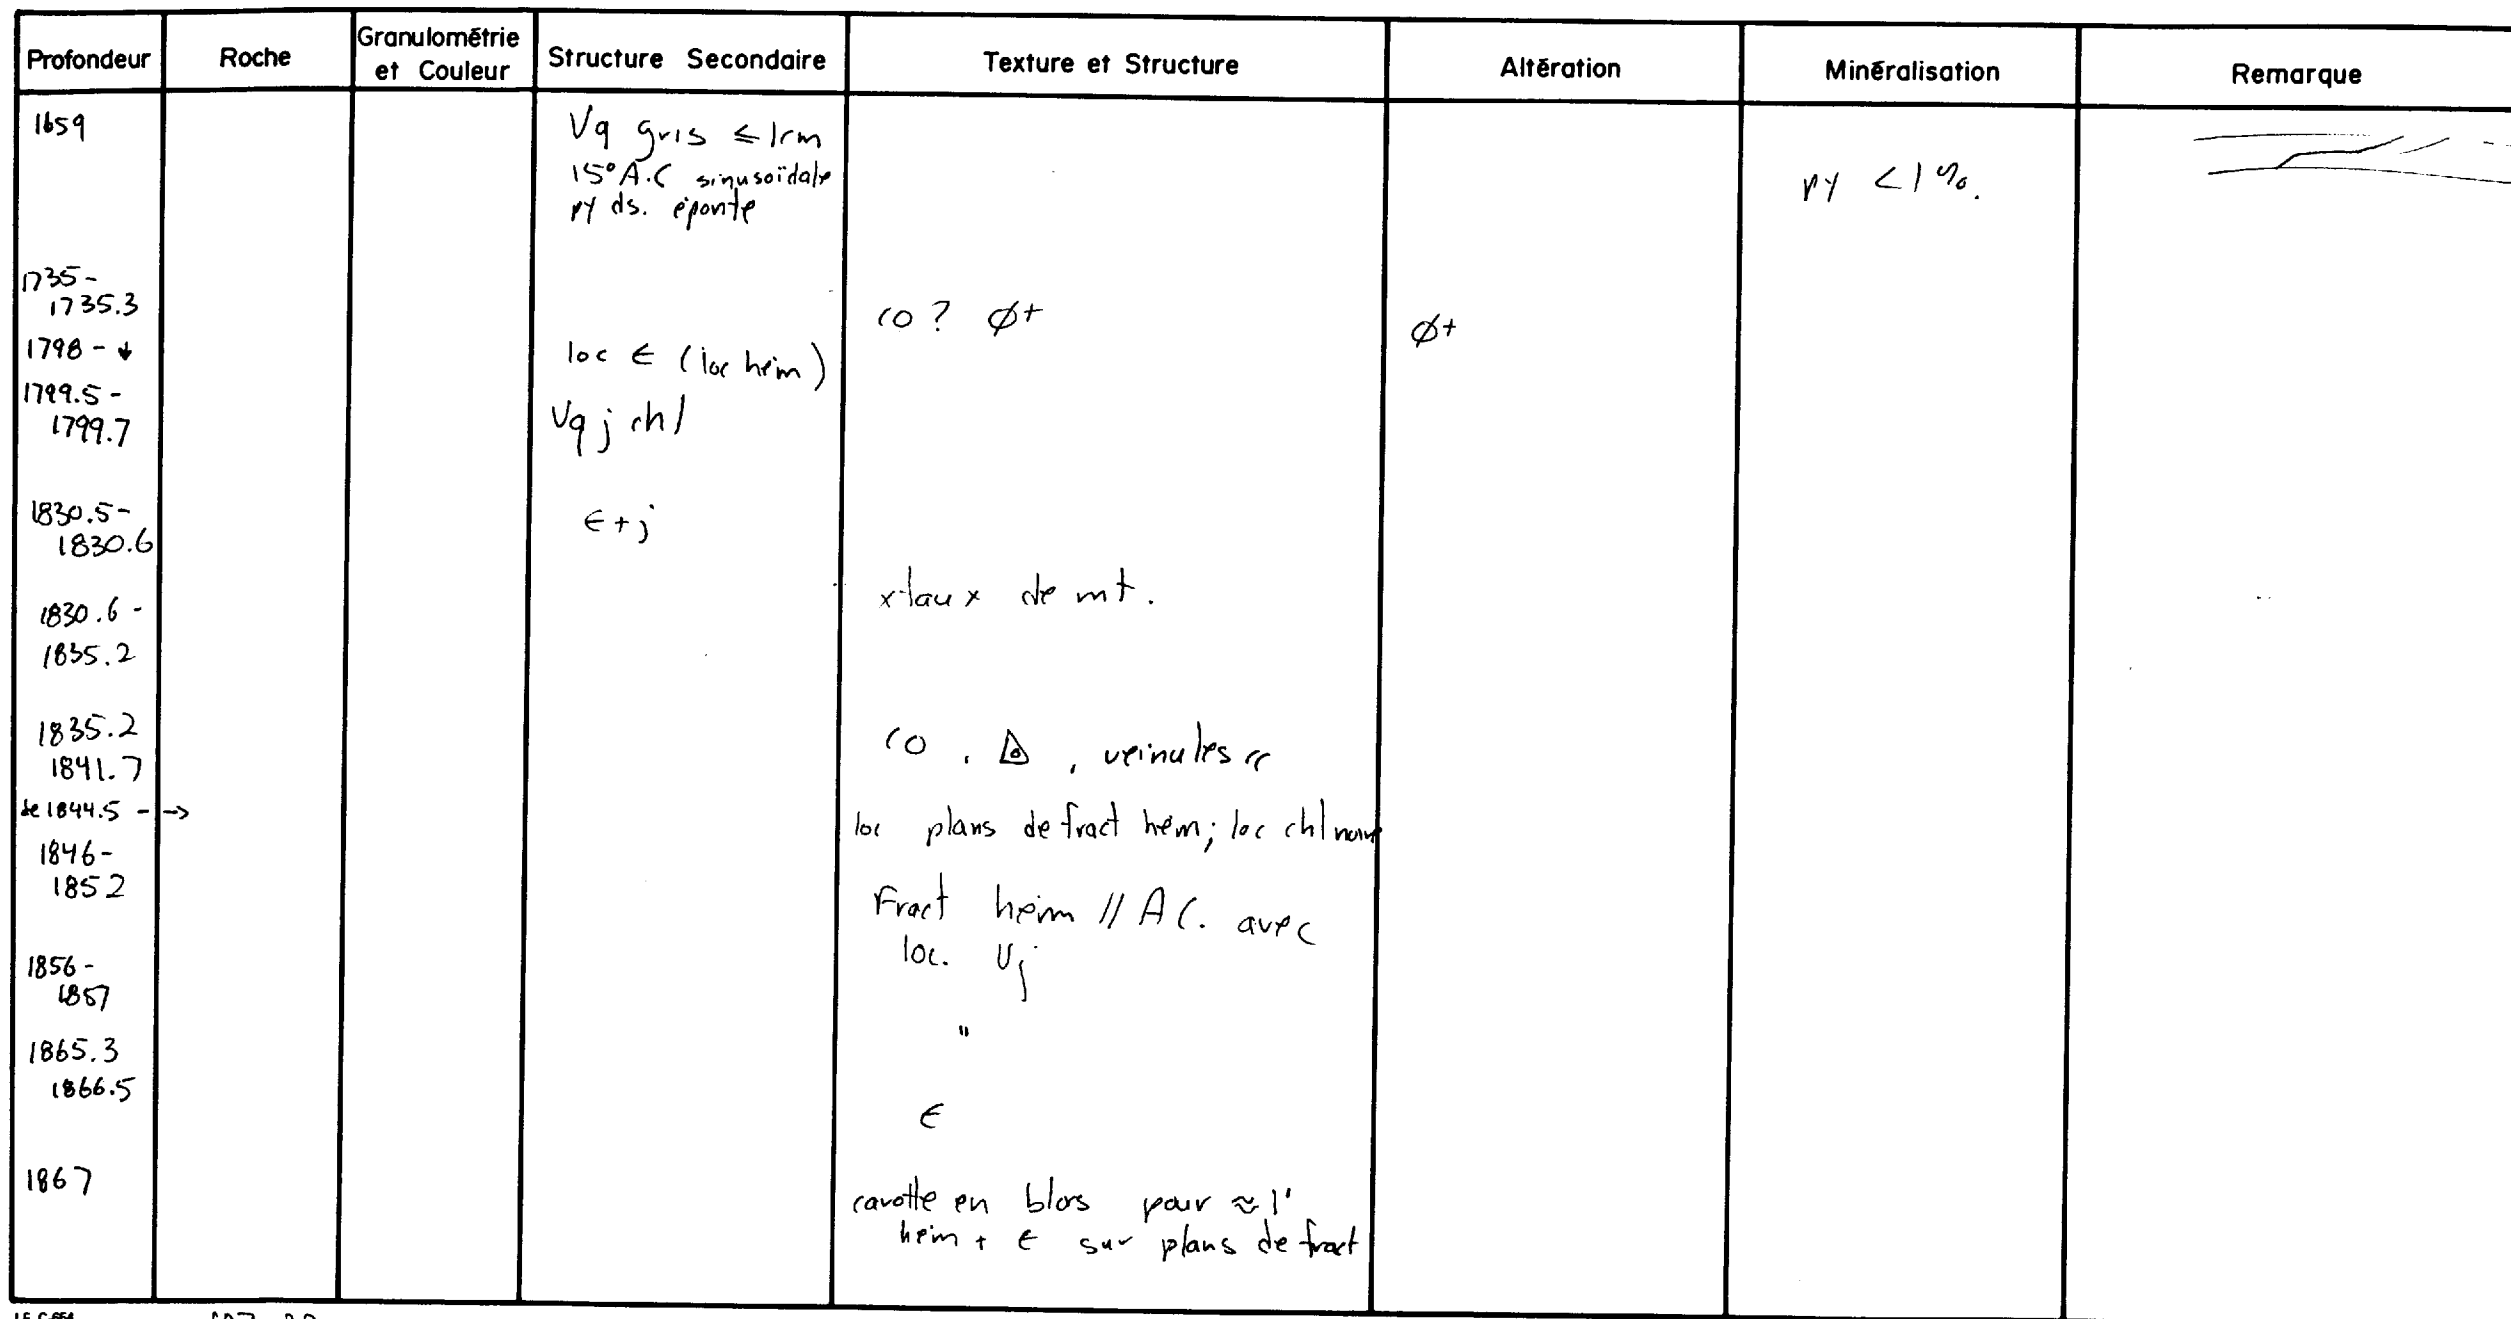 Profondeur Roche Granulométrie et Couleur Structure Secondaire Texture et Structure Altération Minéralisation Remarque
1659 Vq gris ≤ 1cm
15° A.C sinusoïdale
py ds. éponte py < 1 %.
1735 -
1735.3 co ? ø+ ø+
1798 - ↓ loc ∈ (loc hém)
1799.5 -
1799.7 Vq j chl
1830.5 -
1830.6 ∈ + j
1830.6 - xtaux de mt.
1835.2
1835.2 co , , veinules cc
1841.7
de 1844.5 - -> loc plans de fract hém; loc chl noire
1846 -
1852 Fract hém // A C. avec
loc. Vj
1856 -
1857 "
1865.3
1866.5 ∈
1867 carotte en blocs pour ≈ 1'
hém + ∈ sur plans de fract